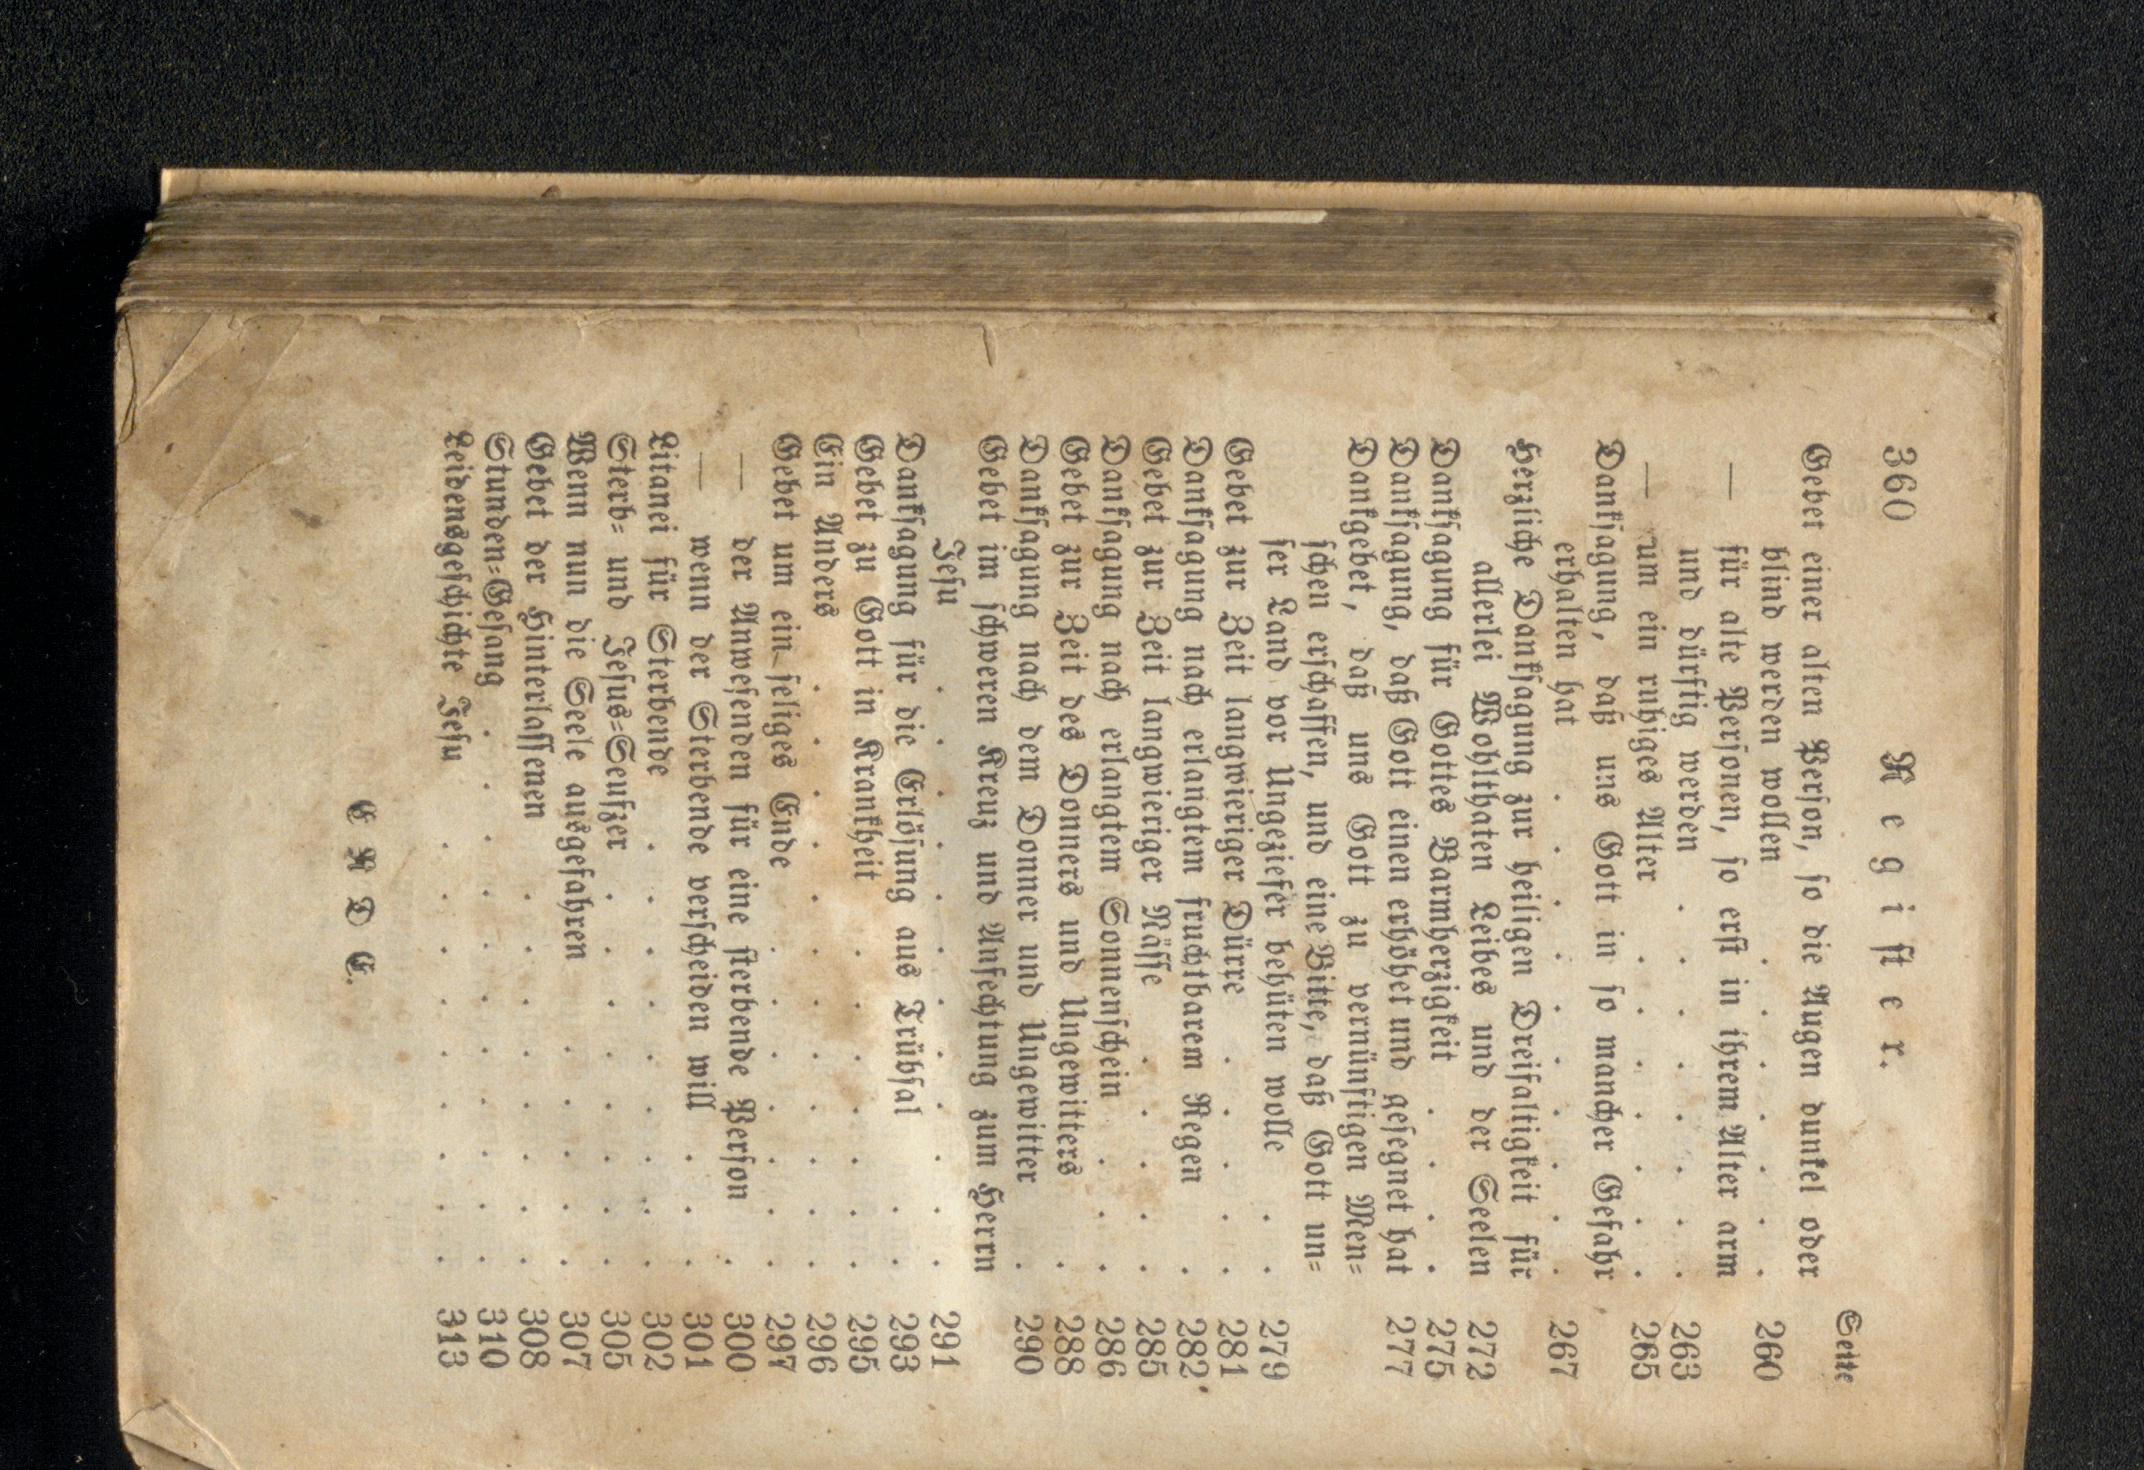 360 Regiſter.
Seite
Gebet einer alten Perſon, ſo die Augen dunkel oder
blind werden wollen . . . . . . . 260
— für alte Perſonen, ſo erſt in ihrem Alter arm
und dürftig werden . . . . . . . . 263
— um ein ruhiges Alter . . . . . . . 265
Dankſagung, daß uns Gott in ſo mancher Gefahr
erhalten hat . . . . . . . . . . 267
Herzliche Dankſagung zur heiligen Dreifaltigkeit für
allerlei Wohlthaten Leibes und der Seelen 272
Dankſagung für Gottes Barmherzigkeit . . . . 275
Dankſagung, daß Gott einen erhöhet und geſegnet hat 277
Dankgebet, daß uns Gott zu vernünftigen Men⸗
ſchen erſchaffen, und eine Bitte, daß Gott un⸗
ſer Land vor Ungeziefer behüten wolle . . 279
Gebet zur Zeit langwieriger Dürre . . . . . 281
Dankſagung nach erlangtem fruchtbarem Regen . 282
Gebet zur Zeit langwieriger Näſſe . . . . . 285
Dankſagung nach erlangtem Sonnenſchein . . . 286
Gebet zur Zeit des Donners und Ungewitters . . 288
Dankſagung nach dem Donner und Ungewitter . 290
Gebet im ſchweren Kreuz und Anfechtung zum Herrn
Jeſu . . . . . . . . . . . . 291
Dankſagung für die Erlöſung aus Trübſal . . . 293
Gebet zu Gott in Krankheit . . . . . . . 295
Ein Anders . . . . . . . . . . . . 296
Gebet um ein ſeliges Ende . . . . . . . . 297
— der Anweſenden für eine ſterbende Perſon . 300
— wenn der Sterbende verſcheiden will . . . 301
Litanei für Sterbende . . . . . . . . . 302
Sterb⸗ und Jeſus⸗Seufzer . . . . . . . . 305
Wenn nun die Seele ausgefahren . . . . . . 307
Gebet der Hinterlaſſenen . . . . . . . . 308
Stunden⸗Geſang . . . . . . . . . . . 310
Leidensgeſchichte Jeſu . . . . . . . . . 313
ENDE.